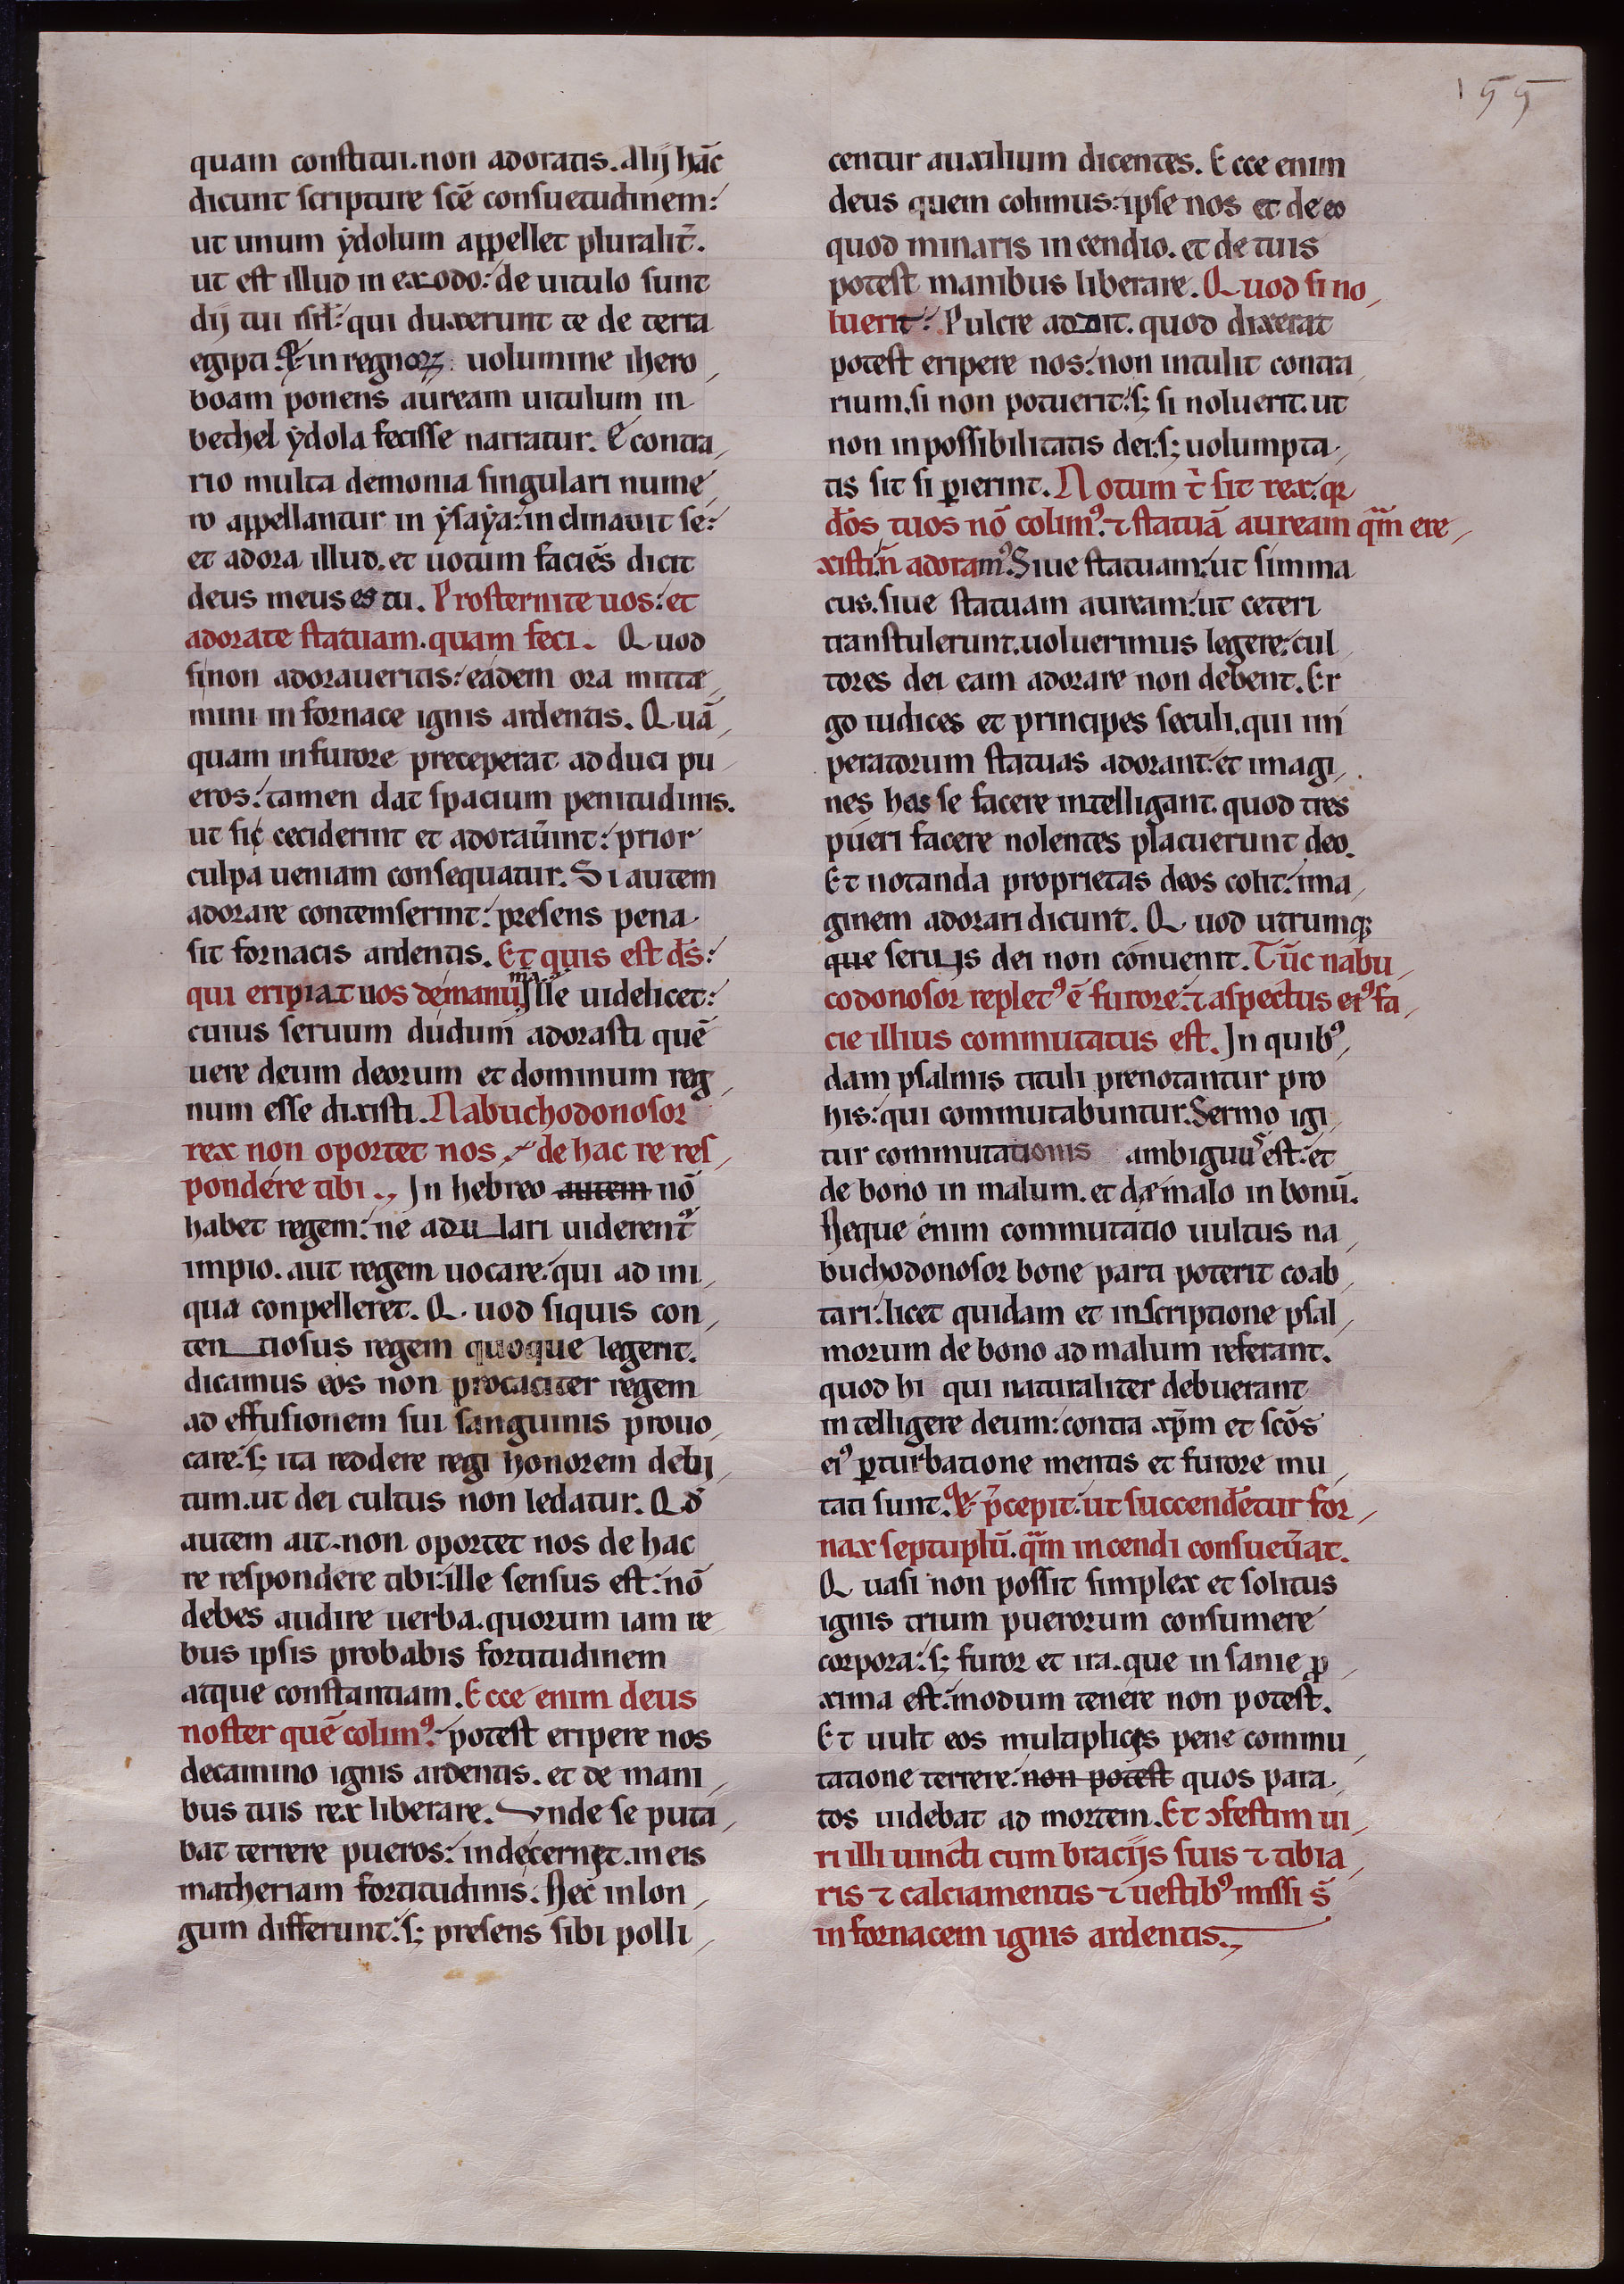 155
quam constitui. non adoratis. Alij hāc
dicunt scripture scē consuetudinem:
ut unum ẏdolum appellet pluralit̄.
ut est illud in exodo: de uitulo sunt
dij tui isrł: qui duxerunt te de terra
egipti. & in regnoꝝ uolumine ihero
boam ponens auream uitulum in
bethel ẏdola fecisse narratur. E contra
rio multa demonia singulari nume
ro appellantur in ẏsaẏa: inclinauit se:
et adora illud. et uotum faciēs dicit
deus meus es tu. Prosternite uos: et
adorate statuam. quam feci. Quod
si non adoraueritis: eadem ora mitte
mini in fornace ignis ardentis. Quā
quam in furore preceperat adduci pu
eros: tamen dat spacium penitudinis.
ut sic ceciderint et adorau̅int: prior
culpa ueniam consequatur. Si autem
adorare contemserint: presens pena
sit fornacis ardentis. Et quis est d̄s:
qui eripiat uos de manu m̄a: Ille uidelicet:
cuius seruum dudum adorasti quē
uere deum deorum et dominum reg
num esse dixisti. Nabuchodonosor
rex non oportet nos de hac re res
pondere tibi., In hebreo autem nō
habet regem: ne adulari uiderent᷑
impio. aut regem uocare: qui ad ini
qua conpelleret. Quod siquis con
tentiosus regem quoque legerit.
dicamus eos non procaciter regem
ad effusionem sui sanguinis prouo
care: sꝫ ita reddere regi honorem debi
tum. ut dei cultus non ledatur. Qd̄
autem ait. non oportet nos de hac
re respondere tibi: ille sensus est: nō
debes audire uerba. quorum iam re
bus ipsis probabis fortitudinem
atque constantiam. Ecce enim deus
noster quē colimꝰ: potest eripere nos
de camino ignis ardentis. et de mani
bus tuis rex liberare. Vnde se puta
bat terrere pueros: inde cernet. in eis
matheriam fortitudinis. Nec in lon
gum differunt: sꝫ presens sibi polli
centur auxilium dicentes. Ecce enim
deus quem colimus: ipse nos et de eo
quod minaris incendio. et de tuis
potest manibus liberare. Quod si no
luerit: Pulcre addit. quod dixerat
potest eripere nos: non intulit contra
rium. si non potuerit: sꝫ si noluerit. ut
non inpossibilitatis dei: sꝫ uolumpta
tis sit si ꝑierint. Notum t̄ sit rex: qꝛ
d̄os tuos nō colimꝰ. ⁊ statuā auream qm̄ ere
xisti: n̄ adoramꝰ. Siue statuam: ut simma
cus. siue statuam auream: ut ceteri
transtulerunt. uoluerimus legere: cul
tores dei eam adorare non debent. Er
go iudices et principes seculi. qui im
peratorum statuas adorant: et imagi
nes hos se facere intelligant. quod tres
pueri facere nolentes placuerunt deo.
Et notanda proprietas deos colit: ima
ginem adorari dicunt. Quod utrumqꝫ
que seruis dei non conuenit. Tūc nabu
codonosor repletꝰ ē furore: ⁊ aspectus eiꝰ fa
cie illius commutatus est. In quibꝰ
dam psalmis tituli prenotantur pro
his: qui commutabuntur. Sermo igi
tur commutationis ambiguus est: et
de bono in malum. et de malo in bonū.
Neque enim commutatio uultus na
buchodonosor bone parti poterit coab
tari: licet quidam et inscriptione psal
morum de bono ad malum referant.
quod hi qui naturaliter debuerant
intelligere deum: contra xp̄m et scōs
eiꝰ ꝑturbatione mentis et furore mu
tati sunt. & p̄cepit: ut succenderetur for
nax septuplū. qm̄ incendi consueu̅at.
Quasi non possit simplex et solitus
ignis trium puerorum consumere
corpora: sꝫ furor et ira. que insanie ꝓ
xima est: modum tenere non potest.
Et uult eos multiplices pene commu
tatione terrere: non potest quos para
tos uidebat ad mortem. Et ↄfestim ui
ri illi uincti cum bracijs suis ⁊ tibia
ris ⁊ calciamentis ⁊ uestibꝰ missi s̄
in fornacem ignis ardentis.,